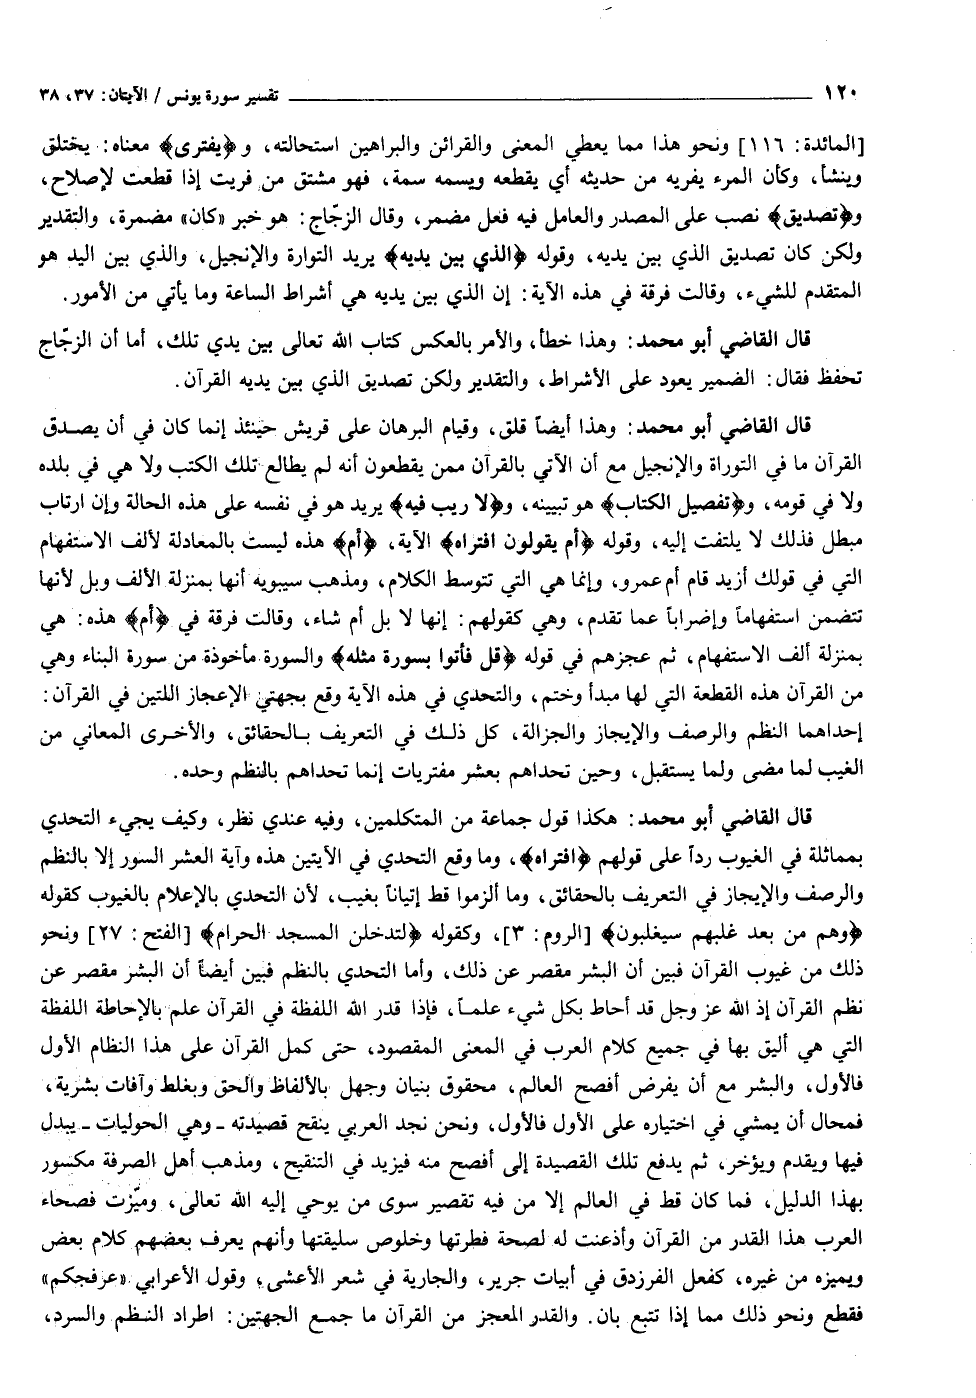 ١٢٠ ــــــــــــــــــــ تفسير سورة يونس / الآيتان: ٣٧، ٣٨
[المائدة: ١١٦] ونحو هذا مما يعطي المعنى والقرائن والبراهين استحالته، و﴿يفترى﴾ معناه: يختلق
وينشأ، وكأن المرء يفريه من حديثه أي يقطعه ويسمه سمة، فهو مشتق من فريت إذا قطعت لإصلاح،
و﴿تصديق﴾ نصب على المصدر والعامل فيه فعل مضمر، وقال الزجّاج: هو خبر «كان» مضمرة، والتقدير
ولكن كان تصديق الذي بين يديه، وقوله ﴿الذي بين يديه﴾ يريد التوارة والإنجيل، والذي بين اليد هو
المتقدم للشيء، وقالت فرقة في هذه الآية: إن الذي بين يديه هي أشراط الساعة وما يأتي من الأمور.
قال القاضي أبو محمد: وهذا خطأ، والأمر بالعكس كتاب الله تعالى بين يدي تلك، أما أن الزجّاج
تحفظ فقال: الضمير يعود على الأشراط، والتقدير ولكن تصديق الذي بين يديه القرآن.
قال القاضي أبو محمد: وهذا أيضاً قلق، وقيام البرهان على قريش حينئذ إنما كان في أن يصدق
القرآن ما في التوراة والإنجيل مع أن الآتي بالقرآن ممن يقطعون أنه لم يطالع تلك الكتب ولا هي في بلده
ولا في قومه، و﴿تفصيل الكتاب﴾ هو تبيينه، و﴿لا ريب فيه﴾ يريد هو في نفسه على هذه الحالة وإن ارتاب
مبطل فذلك لا يلتفت إليه، وقوله ﴿أم يقولون افتراه﴾ الآية، ﴿أم﴾ هذه ليست بالمعادلة لألف الاستفهام
التي في قولك أزيد قام أم عمرو، وإنما هي التي تتوسط الكلام، ومذهب سيبويه أنها بمنزلة الألف وبل لأنها
تتضمن استفهاماً وإضراباً عما تقدم، وهي كقولهم: إنها لا بل أم شاء، وقالت فرقة في ﴿أم﴾ هذه: هي
بمنزلة ألف الاستفهام، ثم عجزهم في قوله ﴿قل فأتوا بسورة مثله﴾ والسورة مأخوذة من سورة البناء وهي
من القرآن هذه القطعة التي لها مبدأ وختم، والتحدي في هذه الآية وقع بجهتي الإعجاز اللتين في القرآن:
إحداهما النظم والرصف والإيجاز والجزالة، كل ذلك في التعريف بالحقائق، والأخرى المعاني من
الغيب لما مضى ولما يستقبل، وحين تحداهم بعشر مفتريات إنما تحداهم بالنظم وحده.
قال القاضي أبو محمد: هكذا قول جماعة من المتكلمين، وفيه عندي نظر، وكيف يجيء التحدي
بمماثلة في الغيوب رداً على قولهم ﴿افتراه﴾، وما وقع التحدي في الآيتين هذه وآية العشر السور إلا بالنظم
والرصف والإيجاز في التعريف بالحقائق، وما ألزموا قط إتياناً بغيب، لأن التحدي بالإعلام بالغيوب كقوله
﴿وهم من بعد غلبهم سيغلبون﴾ [الروم: ٣]، وكقوله ﴿لتدخلن المسجد الحرام﴾ [الفتح: ٢٧] ونحو
ذلك من غيوب القرآن فبين أن البشر مقصر عن ذلك، وأما التحدي بالنظم فبين أيضاً أن البشر مقصر عن
نظم القرآن إذ الله عز وجل قد أحاط بكل شيء علماً، فإذا قدر الله اللفظة في القرآن علم بالإحاطة اللفظة
التي هي أليق بها في جميع كلام العرب في المعنى المقصود، حتى كمل القرآن على هذا النظام الأول
فالأول، والبشر مع أن يفرض أفصح العالم، محقوق بنيان وجهل بالألفاظ والحق وبغلط وآفات بشرية،
فمحال أن يمشي في اختياره على الأول فالأول، ونحن نجد العربي ينقح قصيدته - وهي الحوليات - يبدل
فيها ويقدم ويؤخر، ثم يدفع تلك القصيدة إلى أفصح منه فيزيد في التنقيح، ومذهب أهل الصرفة مكسور
بهذا الدليل، فما كان قط في العالم إلا من فيه تقصير سوى من يوحي إليه الله تعالى، وميّزت فصحاء
العرب هذا القدر من القرآن وأذعنت له لصحة فطرتها وخلوص سليقتها وأنهم يعرف بعضهم كلام بعض
ويميزه من غيره، كفعل الفرزدق في أبيات جرير، والجارية في شعر الأعشى، وقول الأعرابي «عرفجكم»
فقطع ونحو ذلك مما إذا تتبع بان. والقدر المعجز من القرآن ما جمع الجهتين: اطراد النظم والسرد،